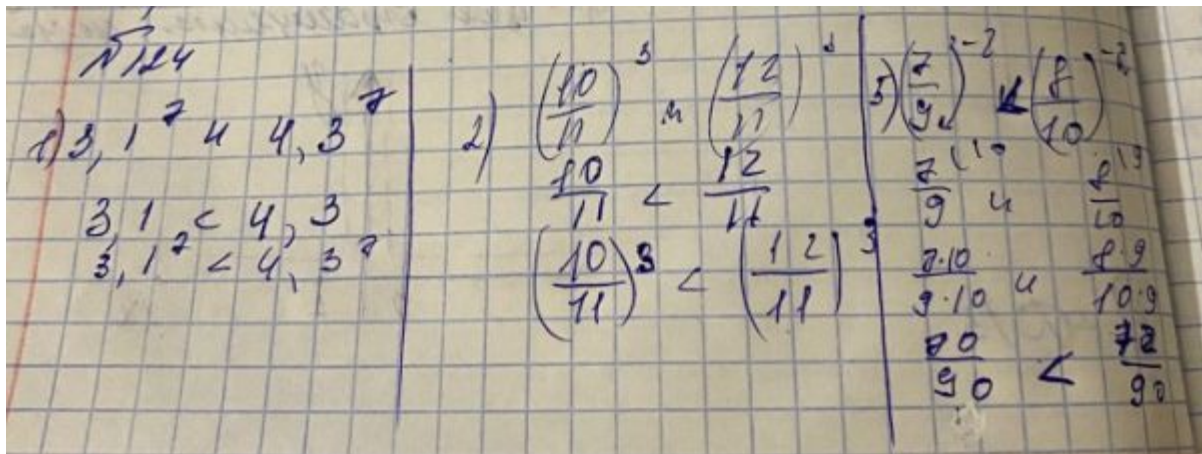 №124
1) 3,1⁷ и 4,3⁷
3,1 < 4,3
3,1⁷ < 4,3⁷
2) (10/11)³ и (12/11)³
10/11 < 12/11
(10/11)³ < (12/11)³
3) (7/9)⁻² < (8/10)⁻²
7/9 ⁽¹⁰ и 8/10 ⁽⁹
7·10/9·10 и 8·9/10·9
70/90 < 72/90